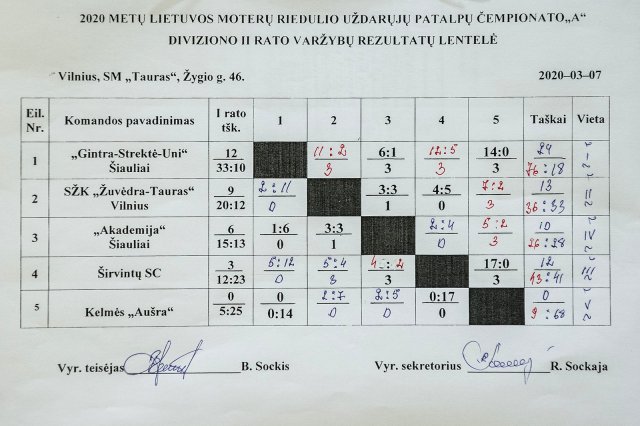 2020 METŲ LIETUVOS MOTERŲ RIEDULIO UŽDARŲJŲ PATALPŲ ČEMPIONATO„A“
DIVIZIONO II RATO VARŽYBŲ REZULTATŲ LENTELĖ
Vilnius, SM „Tauras“, Žygio g. 46. 2020–03–07
Eil. Nr. Komandos pavadinimas I rato tšk. 1 2 3 4 5 Taškai Vieta
1 „Gintra-Strektė-Uni“ 12 11:2 6:1 12:5 14:0 24 I
Šiauliai 33:10 3 3 3 3 76:18
2 SŽK „Žuvėdra-Tauras“ 9 2:11 3:3 4:5 7:2 13 II
Vilnius 20:12 0 1 0 3 36:33
3 „Akademija“ 6 1:6 3:3 2:4 5:2 10 IV
Šiauliai 15:13 0 1 0 3 26:28
4 Širvintų SC 3 5:12 5:4 4:2 17:0 12 III
12:23 0 3 3 3 43:41
5 Kelmės „Aušra“ 0 0 2:7 2:5 0:17 0 V
5:25 0:14 0 0 0 9:68
Vyr. teisėjas B. Sockis Vyr. sekretorius R. Sockaja